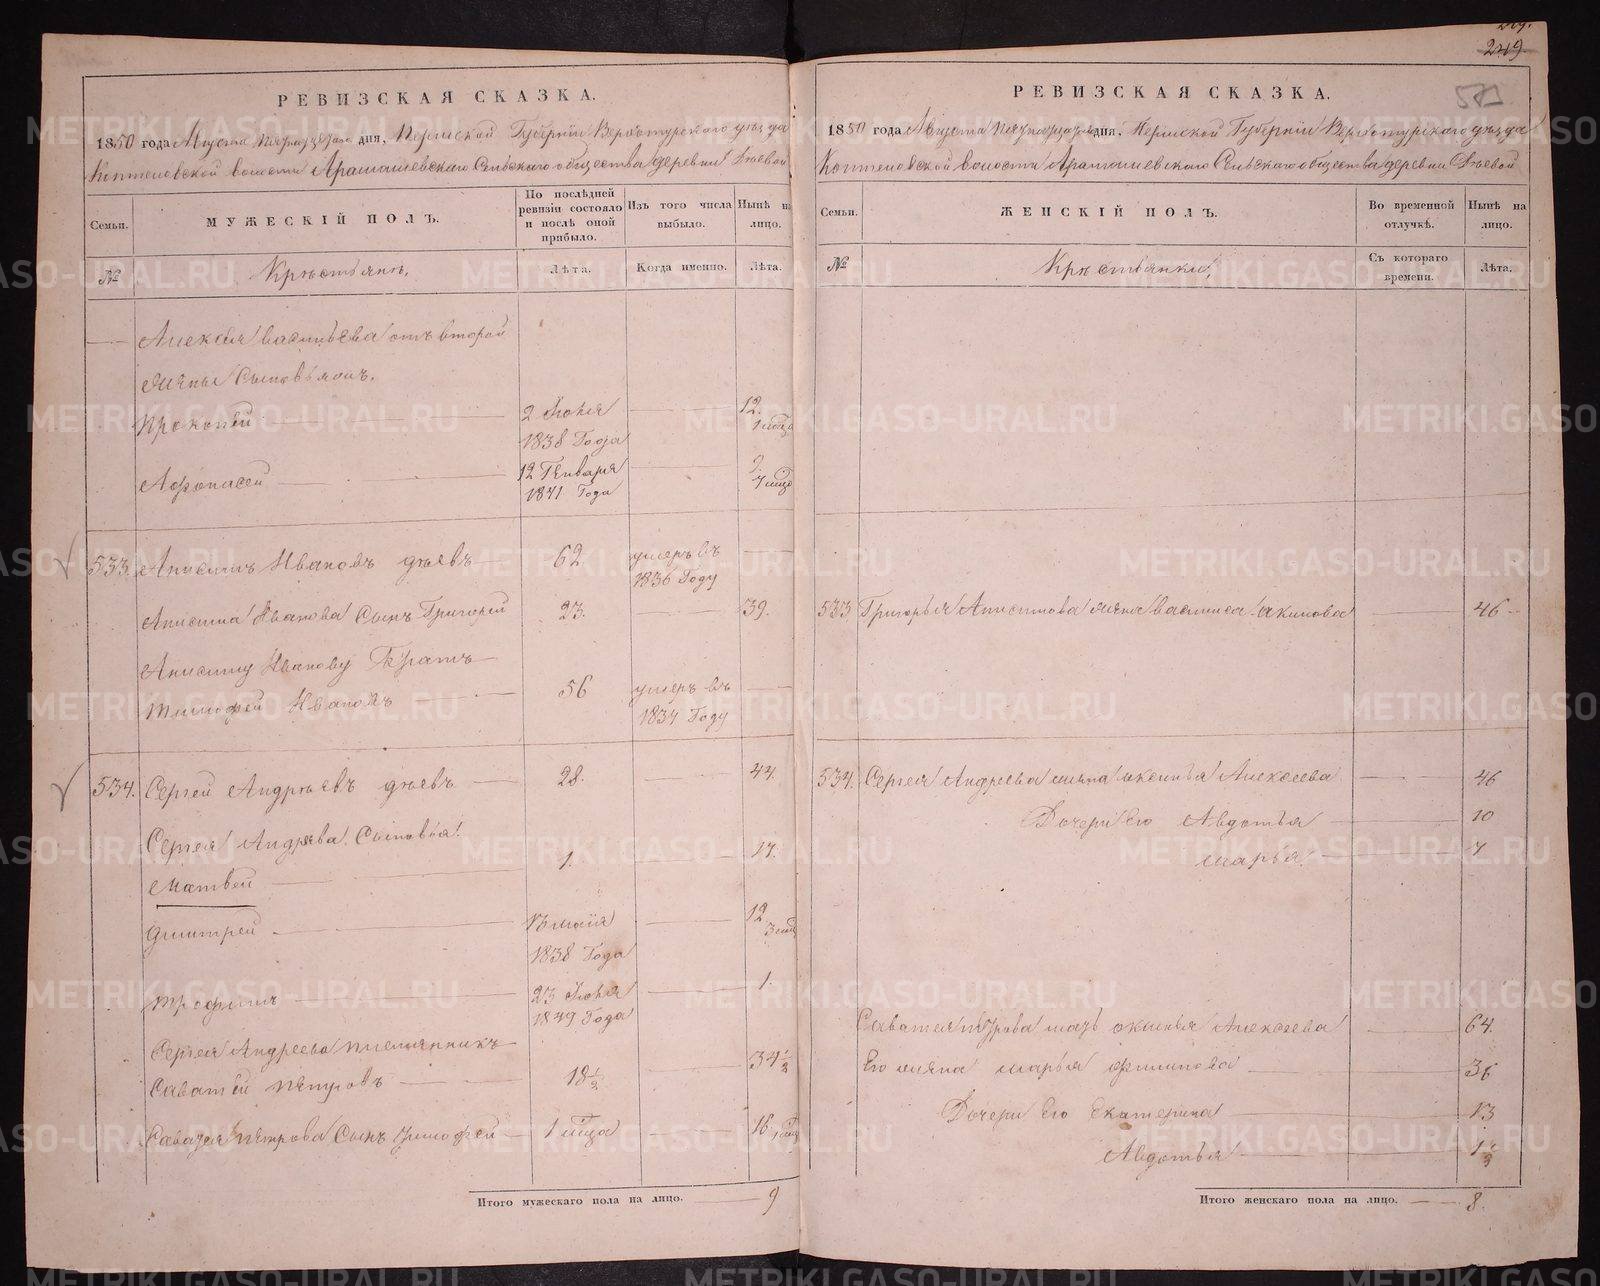 249.
РЕВИЗСКАЯ СКАЗКА.
1850 года Августа пятнадцатаго дня, Пермской Губерніи Верхотурскаго уѣзда
Коптеловской волости Арамашевскаго Сельскаго общества деревни Дѣевой
Семьи.
МУЖЕСКІЙ ПОЛЪ.
По послѣдней ревизіи состояло и послѣ оной прибыло.
Изъ того числа выбыло.
Нынѣ на лицо.
№
Крѣстьянъ,
Лѣта.
Когда именно.
Лѣта.
Алексѣя Васильева отъ второй
жены Сыновья
Прокопей 2 Іюня 1838 Года 12. 1 мѣся
Афонасей 12 Генваря 1841 Года 9. 7 мѣся
533. Анисимъ Ивановъ Дѣевъ 62. умеръ въ 1836 Году
Анисима Иванова Сынъ Григорей 23. 39.
Анисиму Иванову Братъ
Тимофей Ивановъ 56 умеръ въ 1834 Году
534. Сергей Андрѣевъ Дѣевъ 28. 44.
Сергея Андрѣева Сыновья
Матвей 1. 17.
Дмитрей 13 маія 1838 Года 12 3 мѣся
Трофимъ 23 Іюня 1849 Года 1.
Сергея Андреева племянникъ
Саватей Петровъ 18½ 34½
Саватея Петрова Сынъ Тимофей 1 мѣся 16 1 мѣся
Итого мужескаго пола на лицо. 9
РЕВИЗСКАЯ СКАЗКА.
1850 года Августа пятнадцатаго дня, Пермской Губерніи Верхотурскаго уѣзда
Коптеловской волости Арамашевскаго Сельскаго общества деревни Дѣевой
Семьи.
ЖЕНСКІЙ ПОЛЪ.
Во временной отлучкѣ.
Нынѣ на лицо.
№
Крѣстьянки,
Съ котораго времени.
Лѣта.
533 Григорья Анисимова жена Василиса Акимова 46
534. Сергея Андреева жена Аксинья Алексеева 46
Дочери Его Авдотья 10
Марья 7
Саватея Петрова мать Оксинья Алексеева 64.
Его жена Марья Филипова 36
Дочери Его Екатерина 13
Авдотья
Итого женскаго пола на лицо. 8.
METRIKI.GASO-URAL.RU